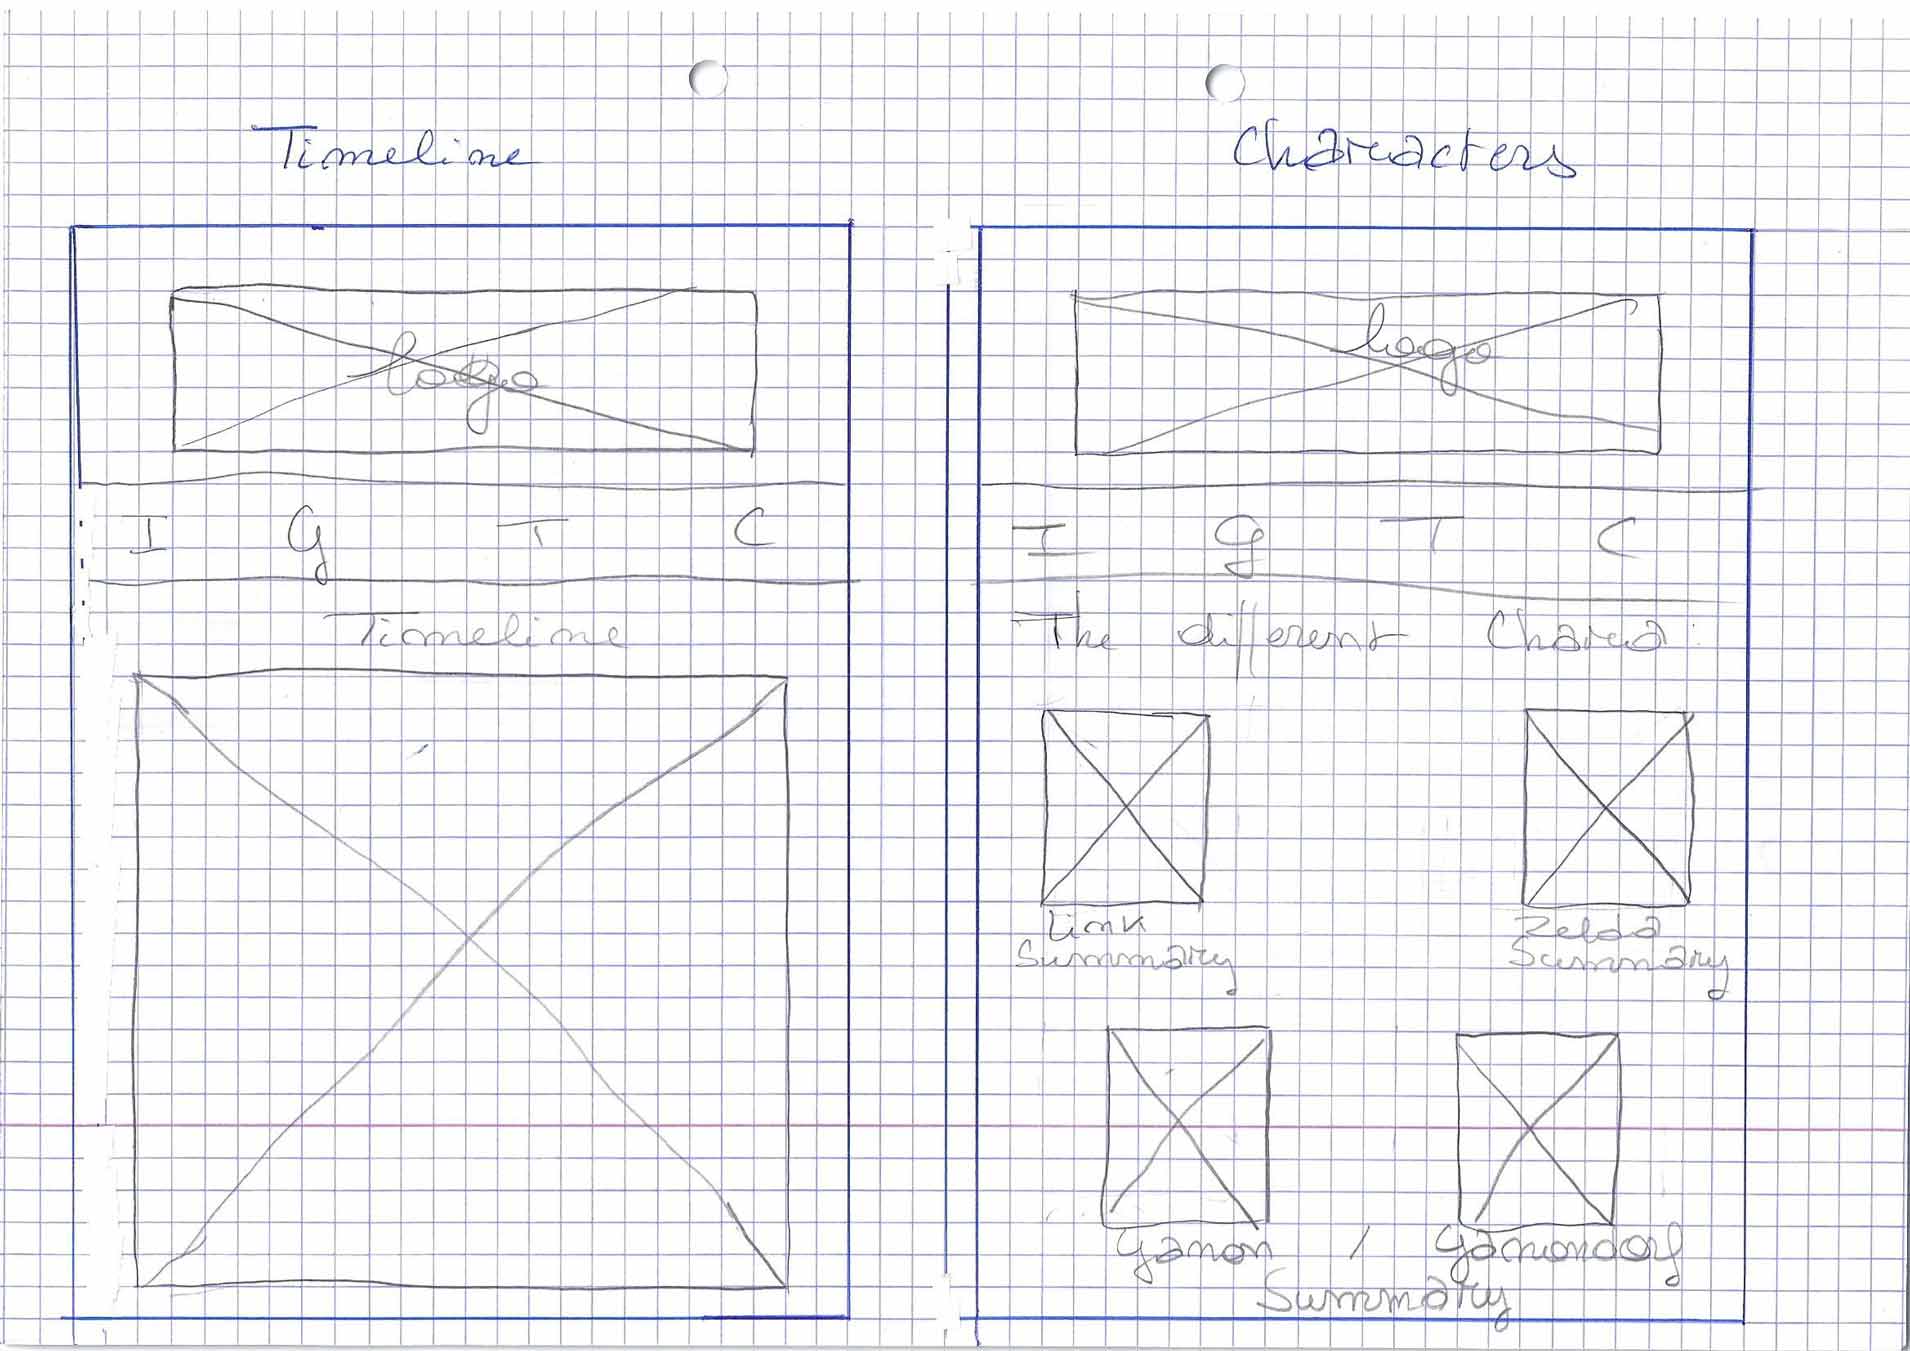 Timeline
Logo
I G T C
Timeline
Characters
Logo
I G T C
The different Chara
Link
Summary
Zelda
Summary
Ganon / Ganondorf
Summary